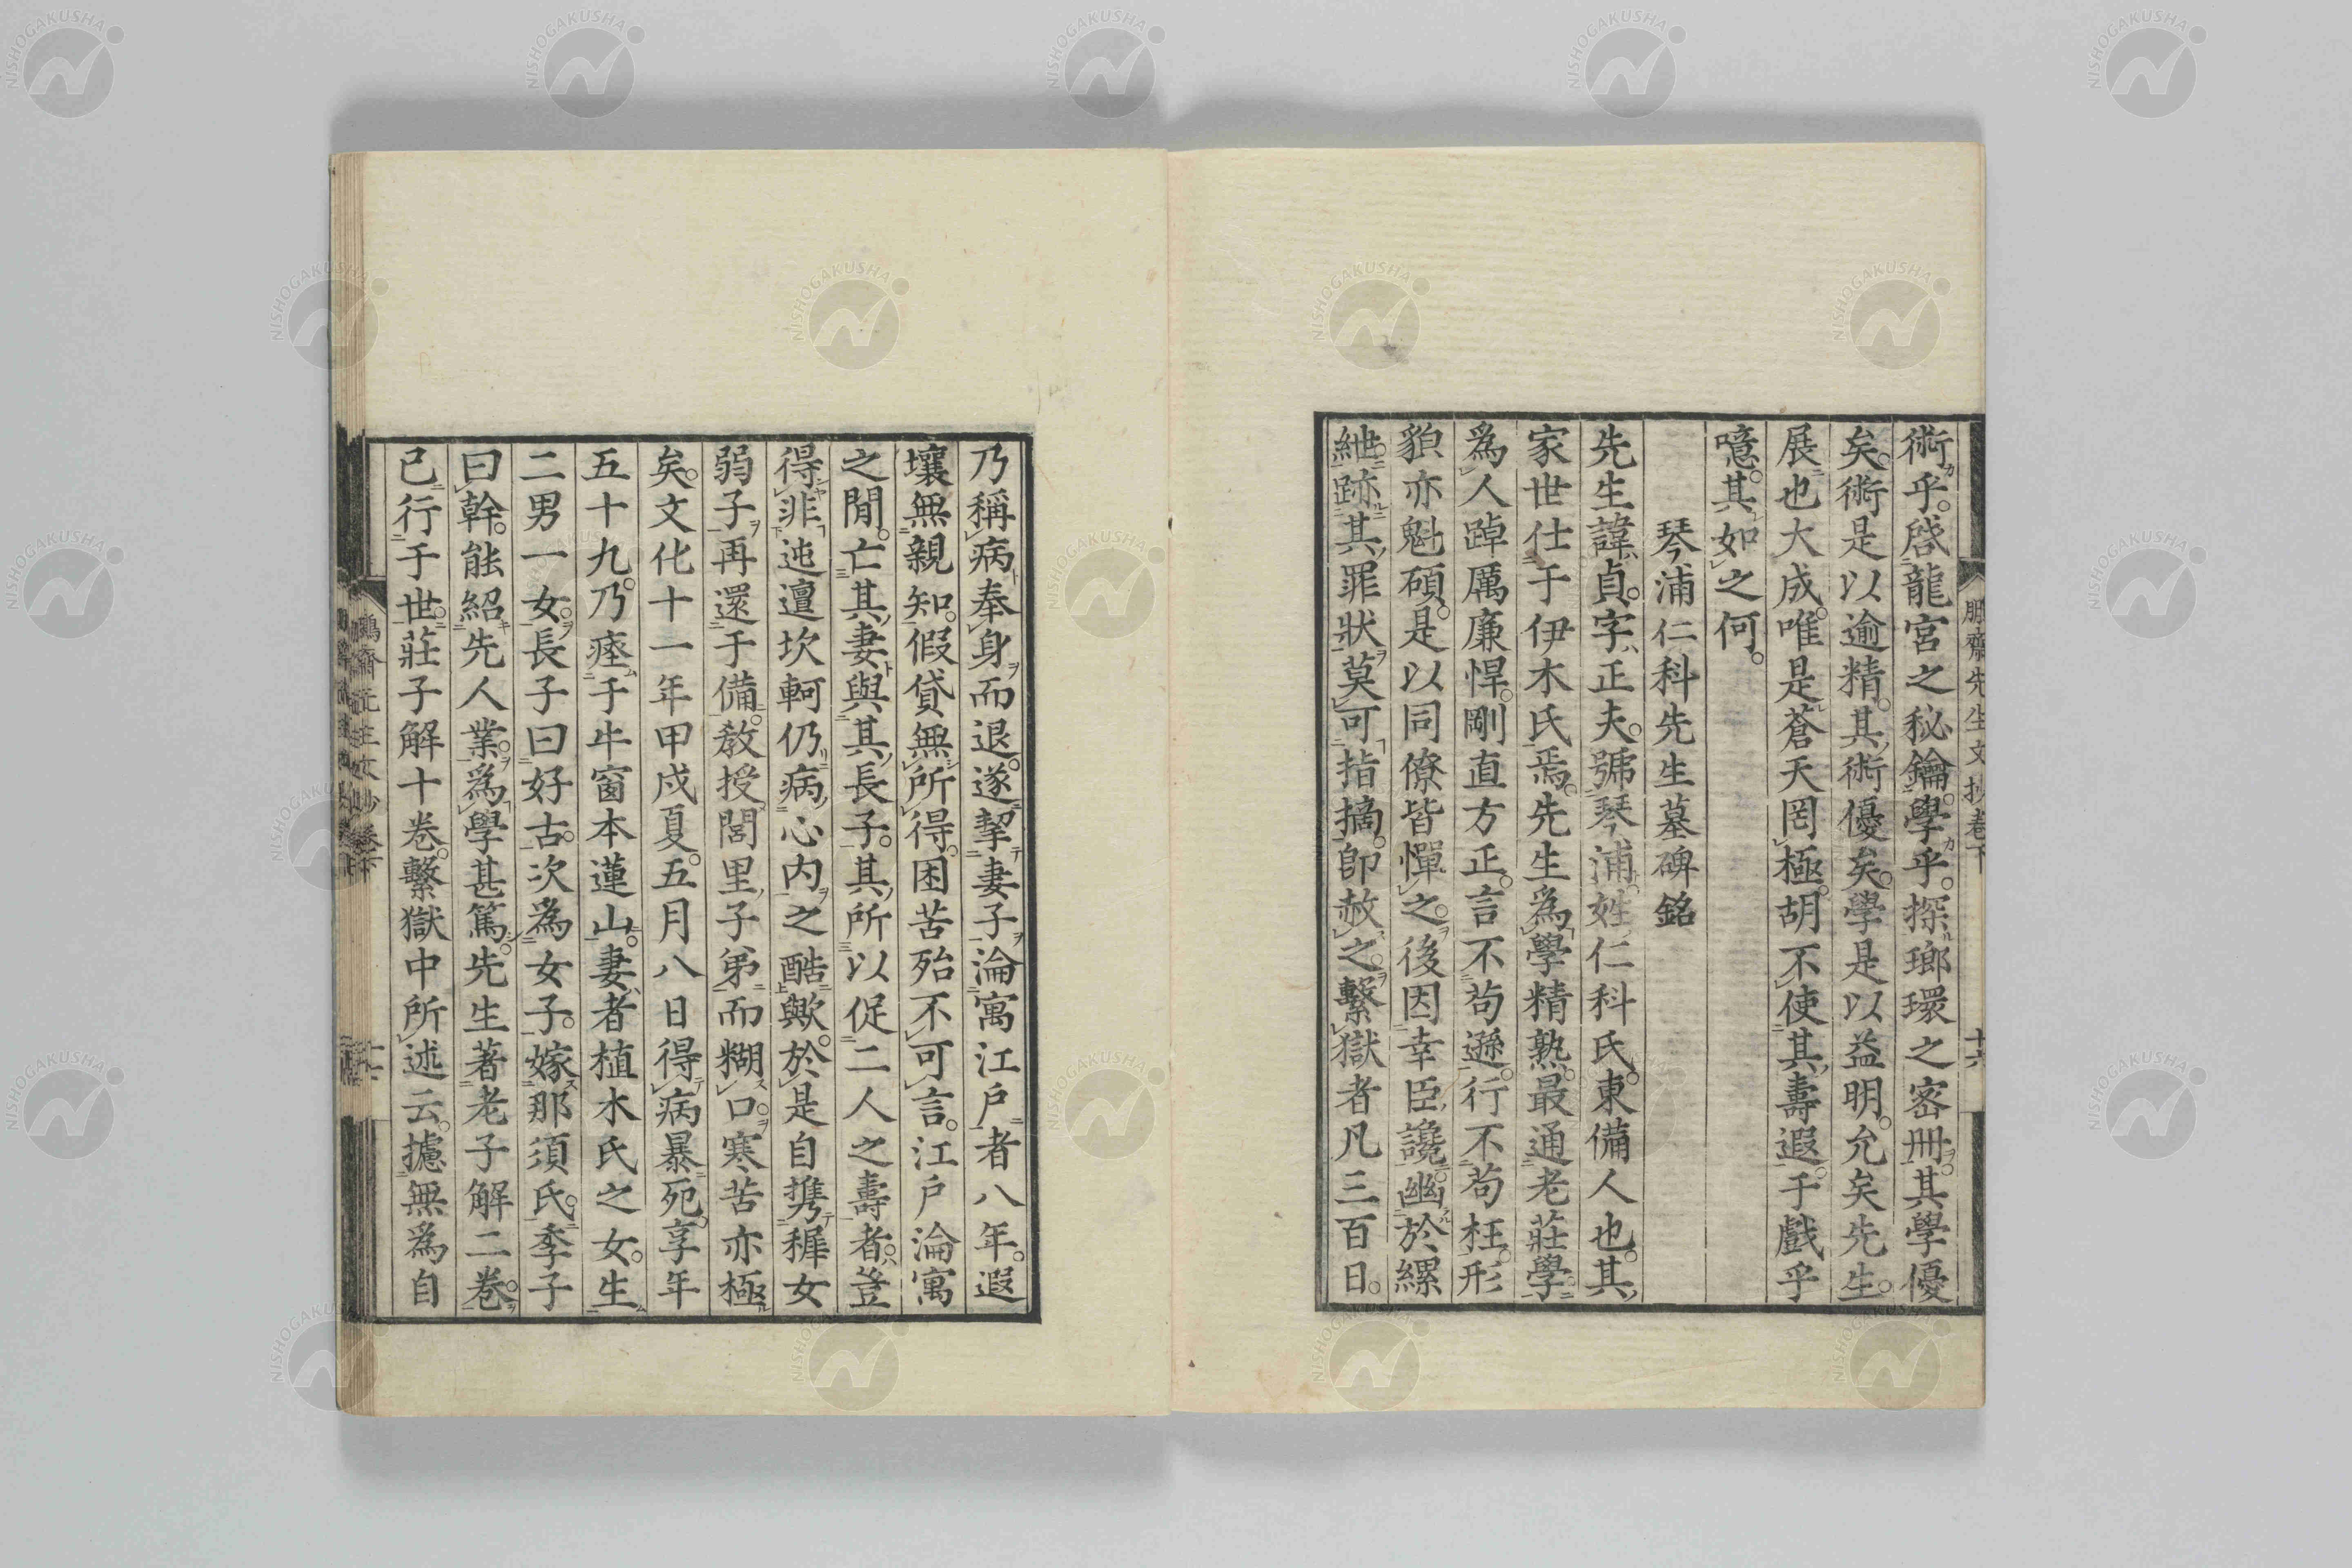 術乎。啓龍宮之秘鑰。學乎。探瑯環之密冊。其學優
矣。術是以逾精。其術優矣。學是以益明。允矣先生。
展也大成。唯是蒼天罔極。胡不使其壽遐。于戲乎
噫。其如之何。
琴浦仁科先生墓碑銘
先生諱貞。字正夫。號琴浦。姓仁科氏。東備人也。其
家世仕于伊木氏焉。先生為學精熟。最通老莊學
為人踔厲廉悍。剛直方正。言不苟遜。行不苟枉。形
貌亦魁碩。是以同僚皆憚之。後因幸臣讒。幽於縲
紲。跡其罪狀。莫可指摘。即赦之。繫獄者凡三百日。
乃稱病奉身而退。遂挈妻子。淪寓江戶者八年。遐
壤無親知。假貸無所得。困苦殆不可言。江戶淪寓
之間。亡其妻與其長子。其所以促二人之壽者。豈
得非迍邅坎軻仍病心內之酷歟。於是自携穉女
弱子。再還于備。教授閭里子弟。而糊口。寒苦亦極
矣。文化十一年甲戌夏。五月八日得病暴死。享年
五十九。乃瘞于牛窗本蓮山。妻者植木氏之女。生
二男一女。長子曰好古。次為女子。嫁那須氏。季子
曰幹。能紹先人業。為學甚篤。先生著老子解二卷。
已行于世。莊子解十卷。繫獄中所述云。攄無為自
鵬齋先生文抄卷下
十六